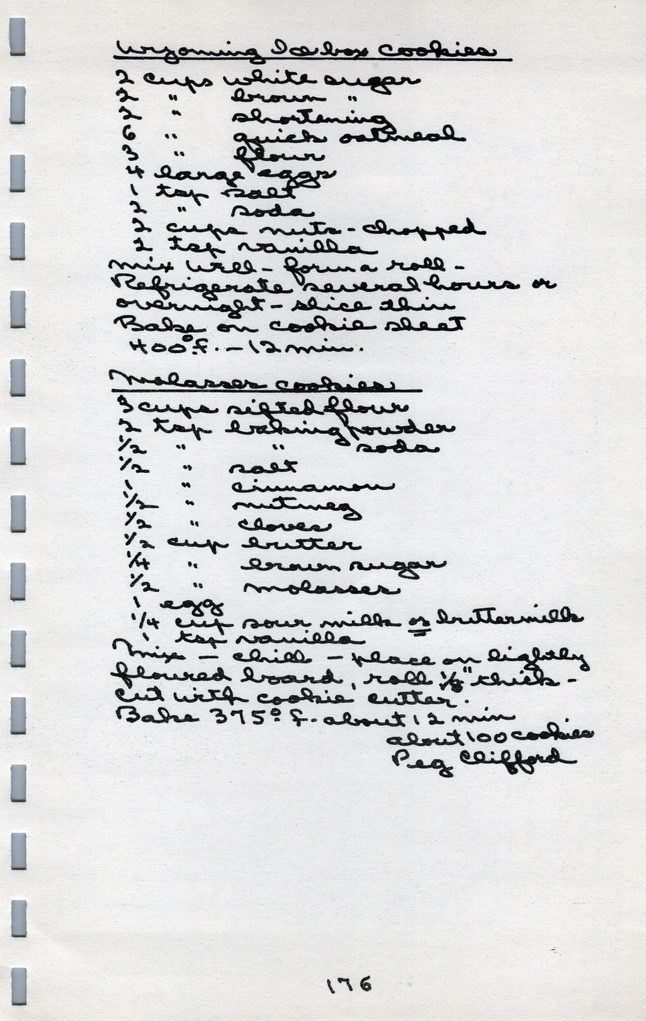 Wyoming Icebox Cookies
2 cups white sugar
2 " brown "
2 " shortening
6 " quick oatmeal
3 " flour
4 large eggs
1 tsp salt
2 " soda
2 cups nuts - chopped
2 tsp vanilla
mix well - form a roll -
Refrigerate several hours or
overnight - slice thin
Bake on cookie sheet
400° f. - 12 min.
Molasses cookies
3 cups sifted flour
2 tsp baking powder
1/2 " " soda
1/2 " salt
1 " cinnamon
1/2 " nutmeg
1/2 " cloves
1/2 cup butter
1/4 " brown sugar
1/2 " molasses
1 egg
1/4 cup sour milk or buttermilk
1 tsp vanilla
Mix - chill - place on lightly
floured board, roll 1/8" thick -
cut with cookie cutter.
Bake 375° f. about 12 min
about 100 cookies
Peg Clifford
176